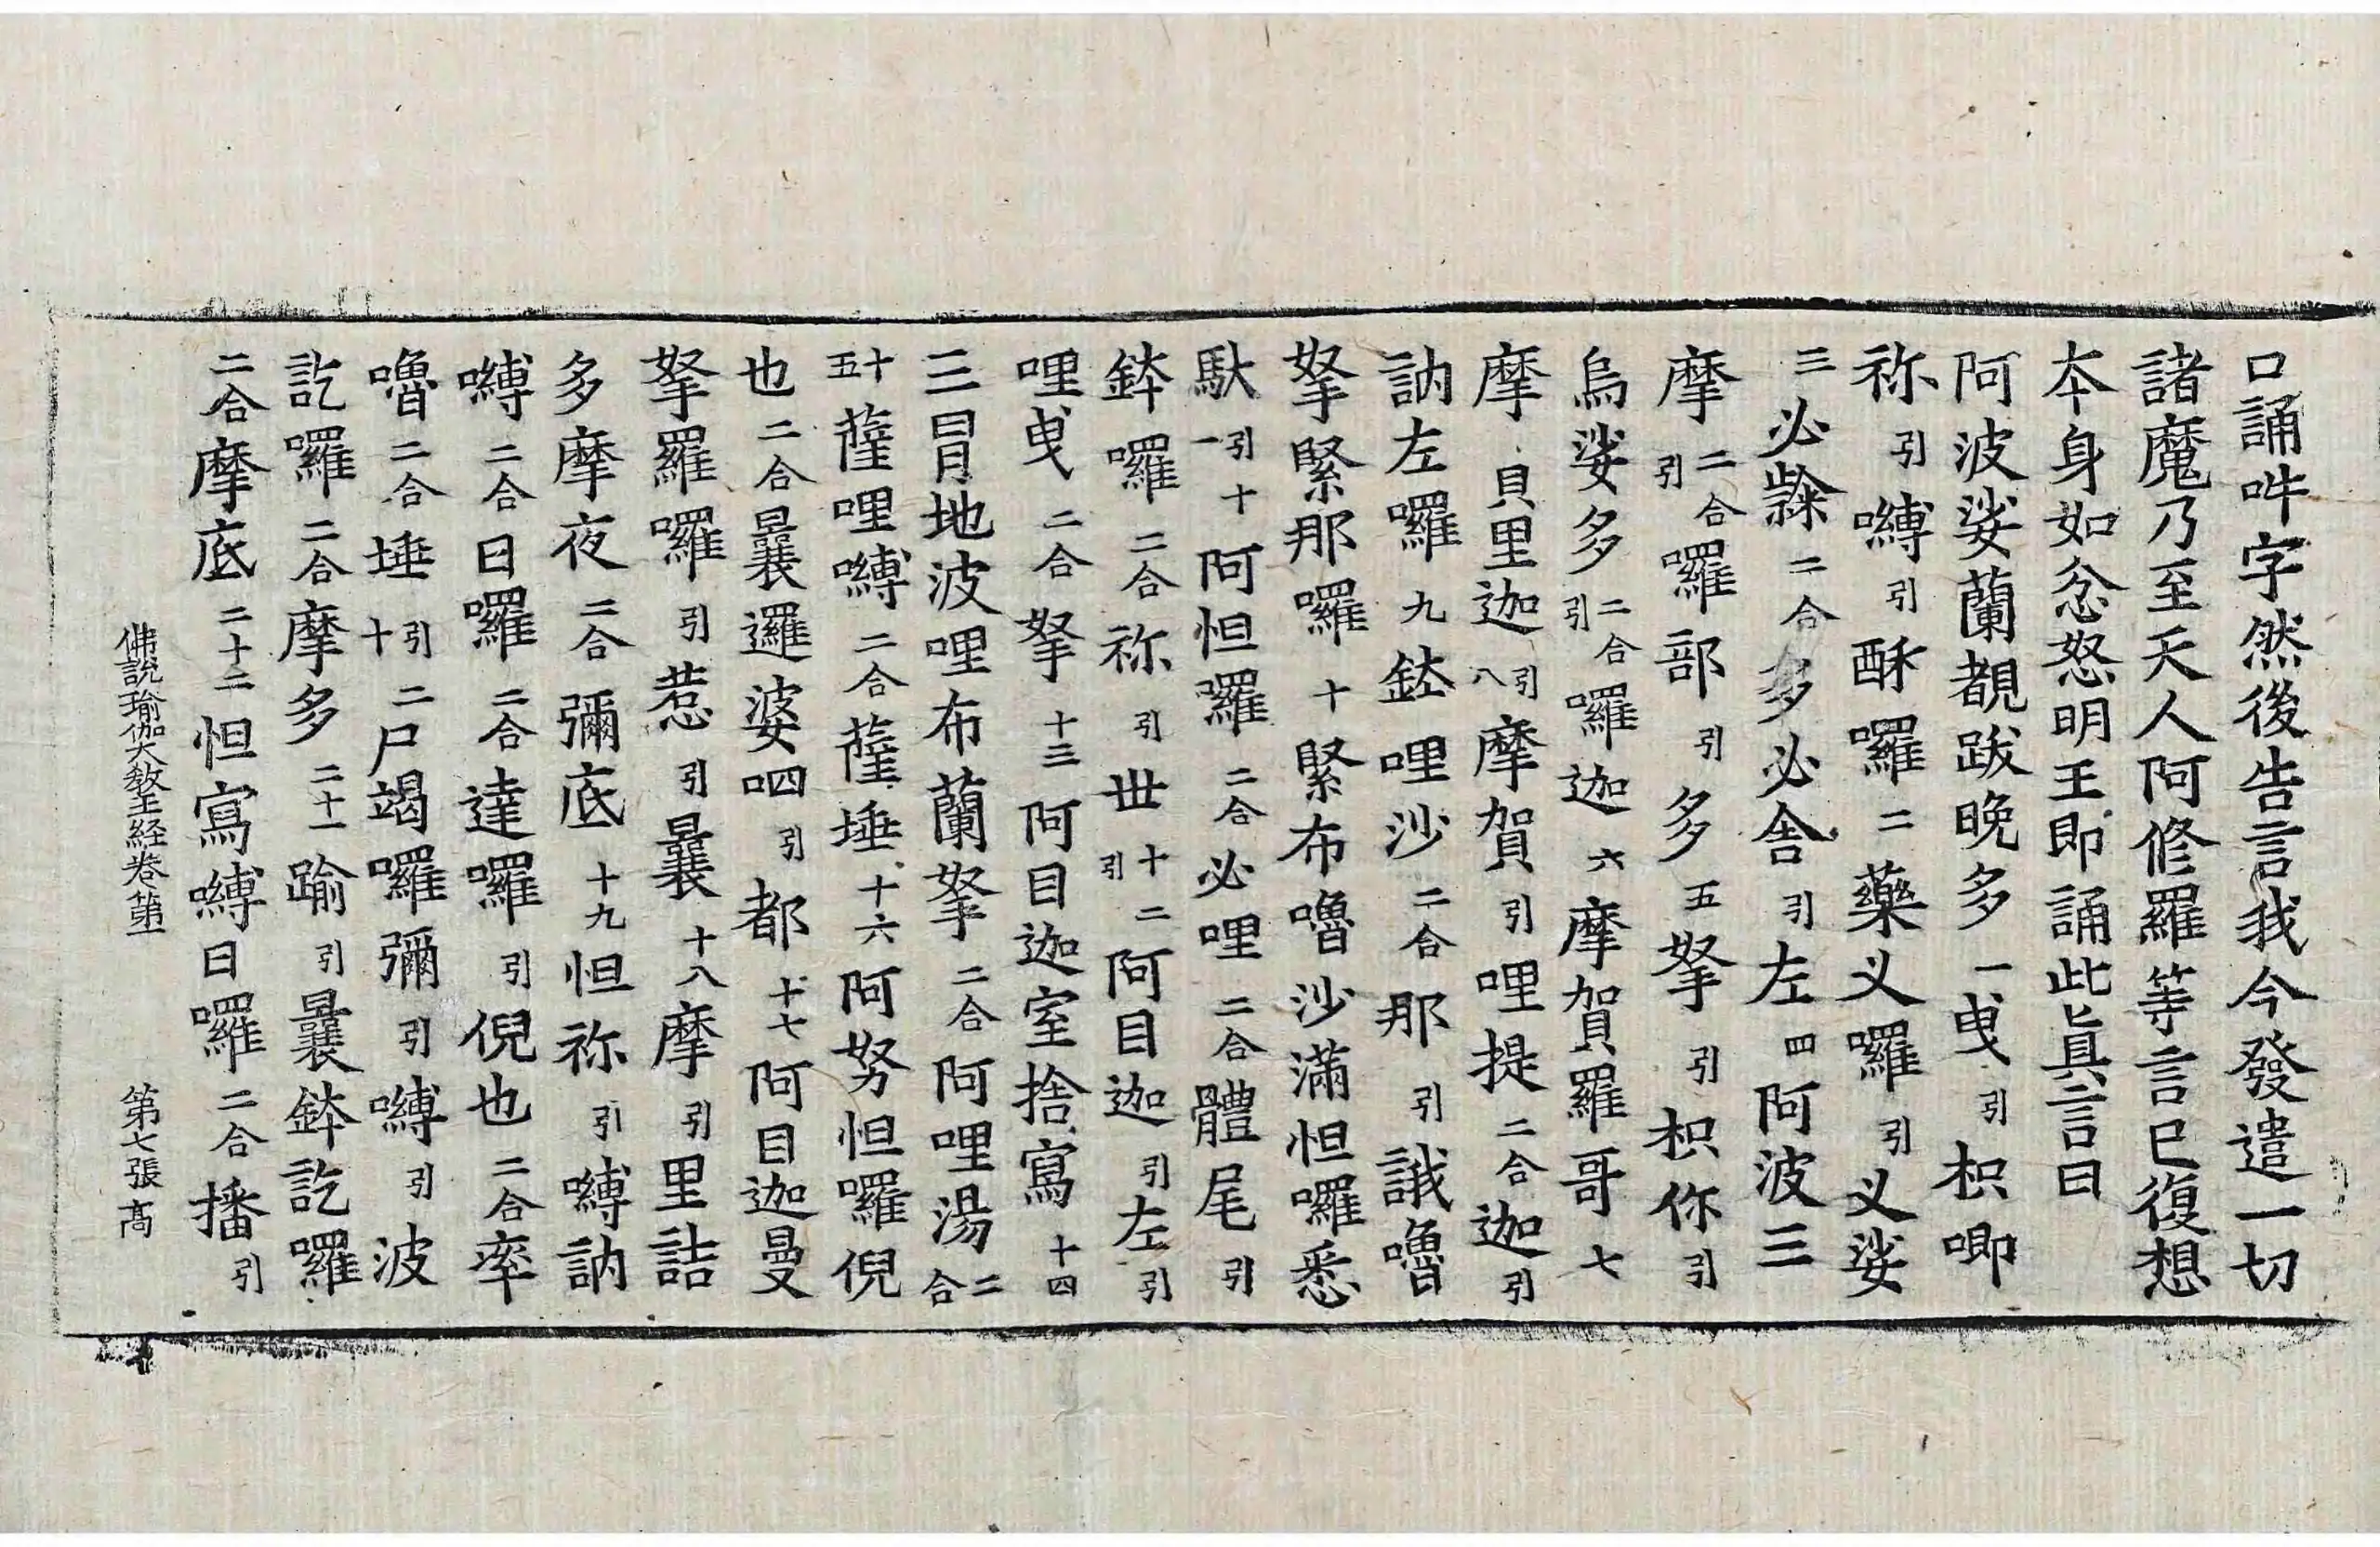 口誦吽字然後告言我今發遣一切
諸魔乃至天人阿修羅等言已復想
本身如忿怒明王即誦此眞言曰
阿波娑蘭覩跋晚多一曳引枳唧
祢引嚩引酥囉二藥义囉引义娑
三必隸二合多必舎引左四阿波三
摩二合引囉部引多五拏引枳你引
烏娑多二合引囉迦六摩賀羅哥七
摩貝里迦引八摩賀引哩提二合迦引
訥左囉九鉢哩沙二合那引誐嚕
拏緊那囉十緊布嚕沙滿怛囉悉
馱引十一阿怛囉二合必哩二合體尾引
鉢囉二合祢引丗十二引阿目迦引左引
哩曳二合拏十三阿目迦室捨寫十四
三冐地波哩布蘭拏二合阿哩湯二合
十五薩哩嚩二合薩埵十六阿努怛囉倪
也二合曩邏婆呬引都十七阿目迦曼
拏羅囉引惹引曩十八摩引里詰
多摩夜二合彌底十九怛祢引嚩訥
嚩二合日囉二合達囉引倪也二合率
嚕二合埵引十二尸竭囉彌引嚩引波
訖囉二合摩多二十一踰引曩鉢訖囉
二合摩底二十二怛寫嚩日囉二合播引
佛說瑜伽大教王経卷苐一 第七張 髙